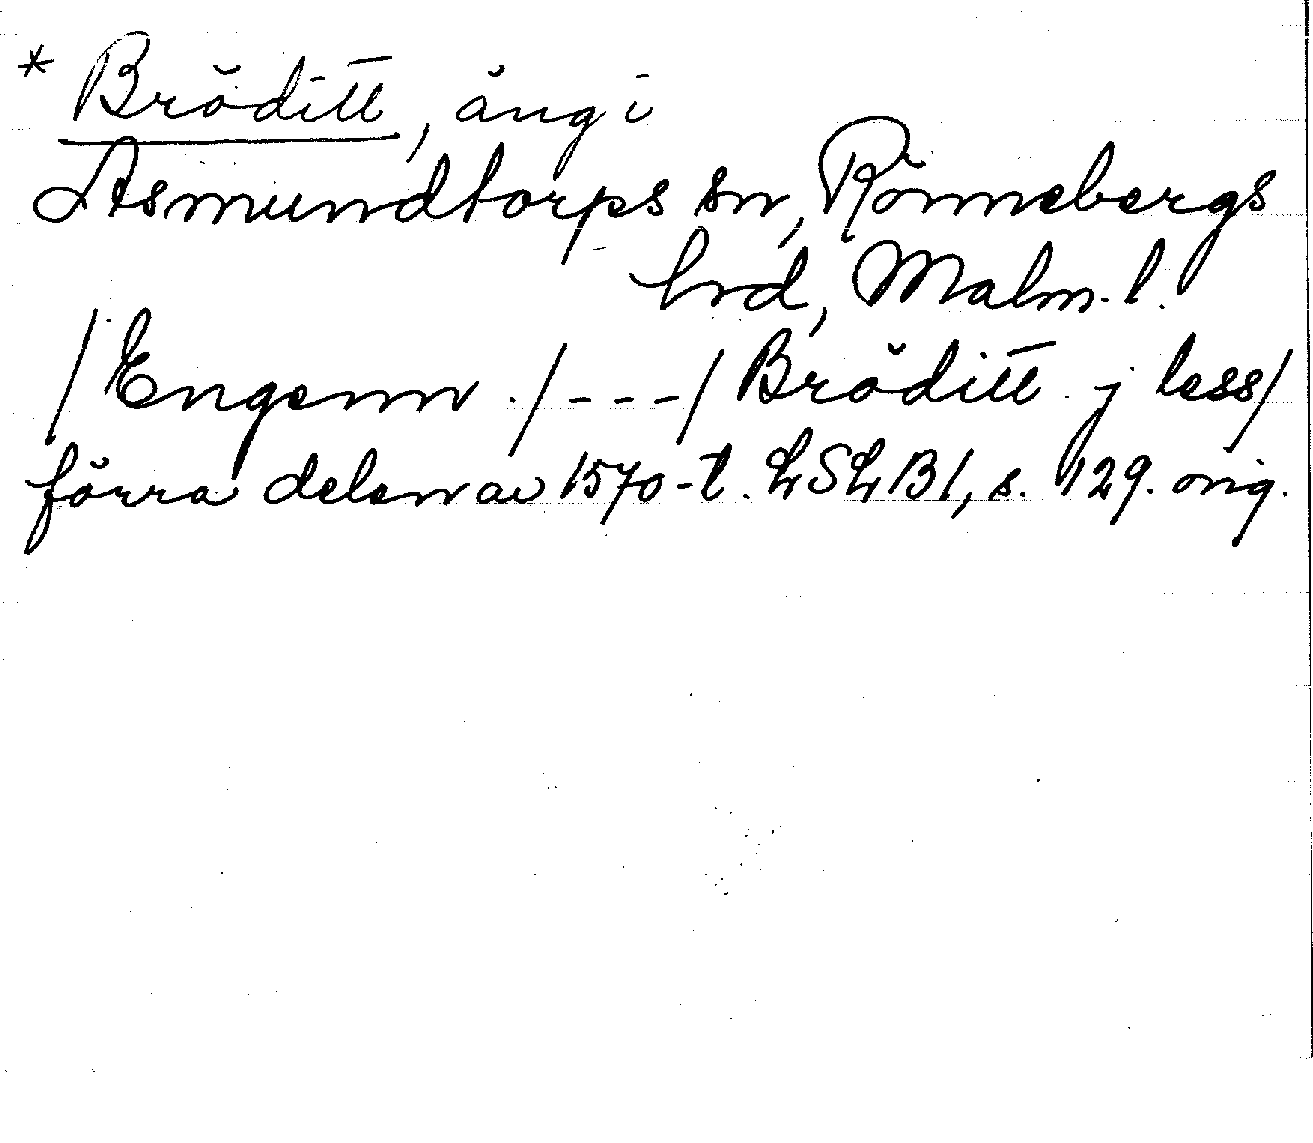 * Bröditt, äng i
Asmundtorps sn, Rönnebergs
hrd, Malm. l.
/Engenn ./---/ Bröditt j less/
förra delen av 1570-t. LSLB1, s. 129. orig.